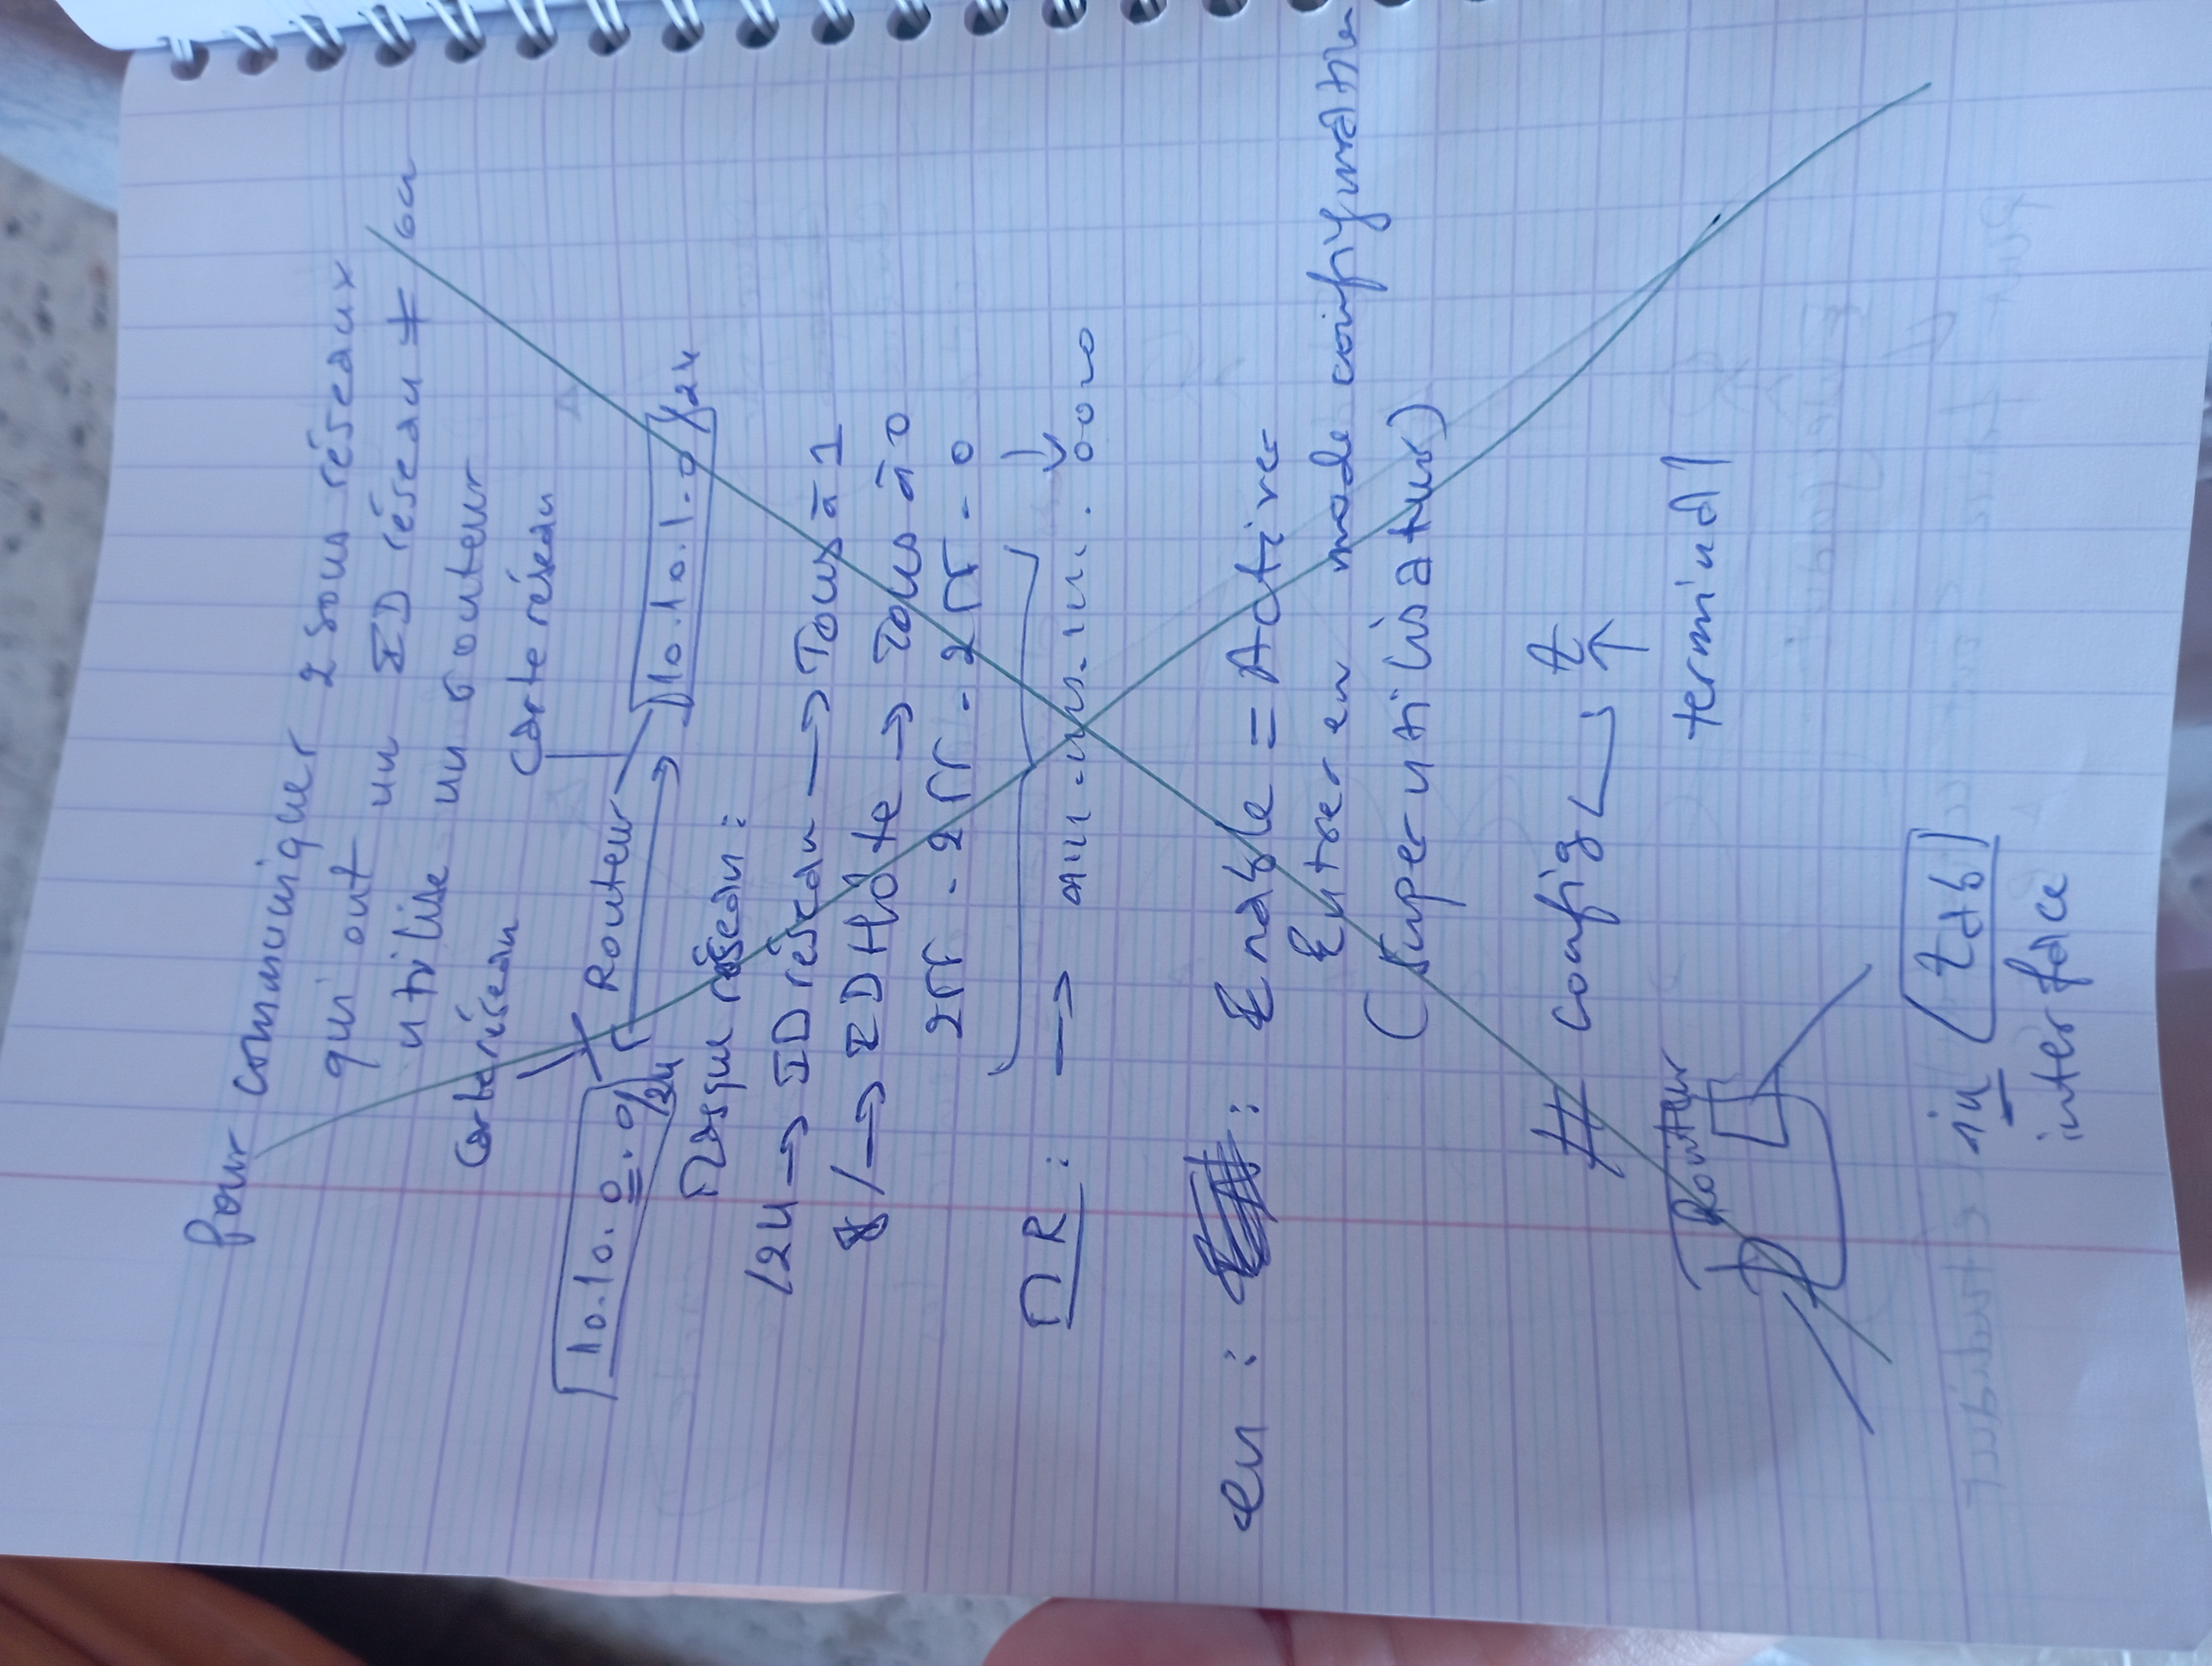 Pour communiquer 2 sous réseaux
qui ont un ID réseau ≠ on
utilise un routeur
Carte réseau
Carte réseau
10.10.0.0/24
Routeur
10.10.1.0/24
Masque réseau :
/24 → ID réseau → Tous à 1
8/ → ID Hôte → Tous à 0
255 - 255 - 255 - 0
MR : →
en : : Enable = Activer
Entrer en mode configuration
(Super utilisateur)
# config t
↑
terminal
Routeur
in [tab]
interface